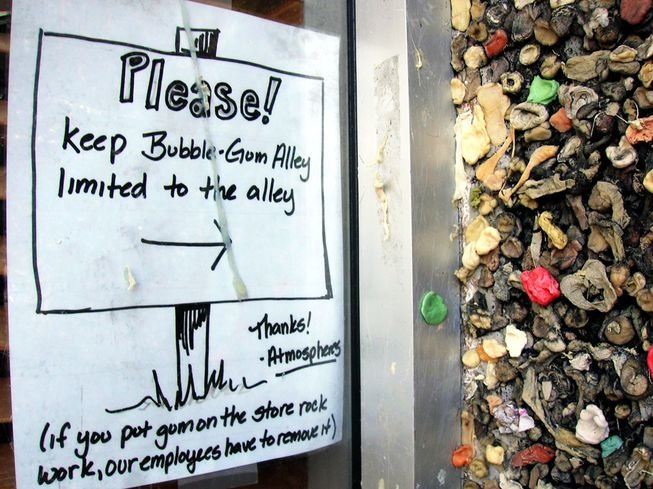 Please!
keep Bubble-Gum Alley
limited to the alley
Thanks!
-Atmospheres
(if you put gum on the store rock
work, our employees have to remove it)